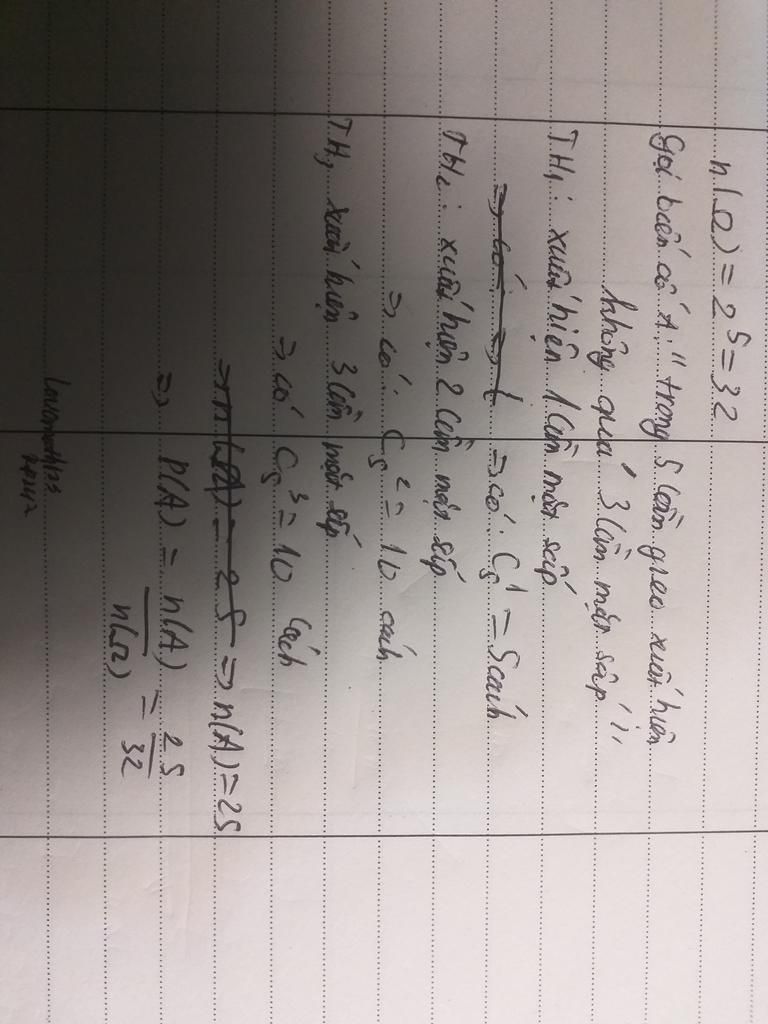 n(Ω) = 2^5 = 32
Gọi biến cố A: "trong 5 lần gieo xuất hiện
không quá 3 lần mặt sấp"
TH1: xuất hiện 1 lần mặt sấp
⇒ có C_5^1 = 5 cách
TH2: xuất hiện 2 lần mặt sấp
⇒ có: C_5^2 = 10 cách
TH3 xuất hiện 3 lần mặt sấp
⇒ có C_5^3 = 10 cách
⇒ n(Ω) = 25 ⇒ n(A) = 25
⇒ P(A) = n(A)/n(Ω) = 25/32